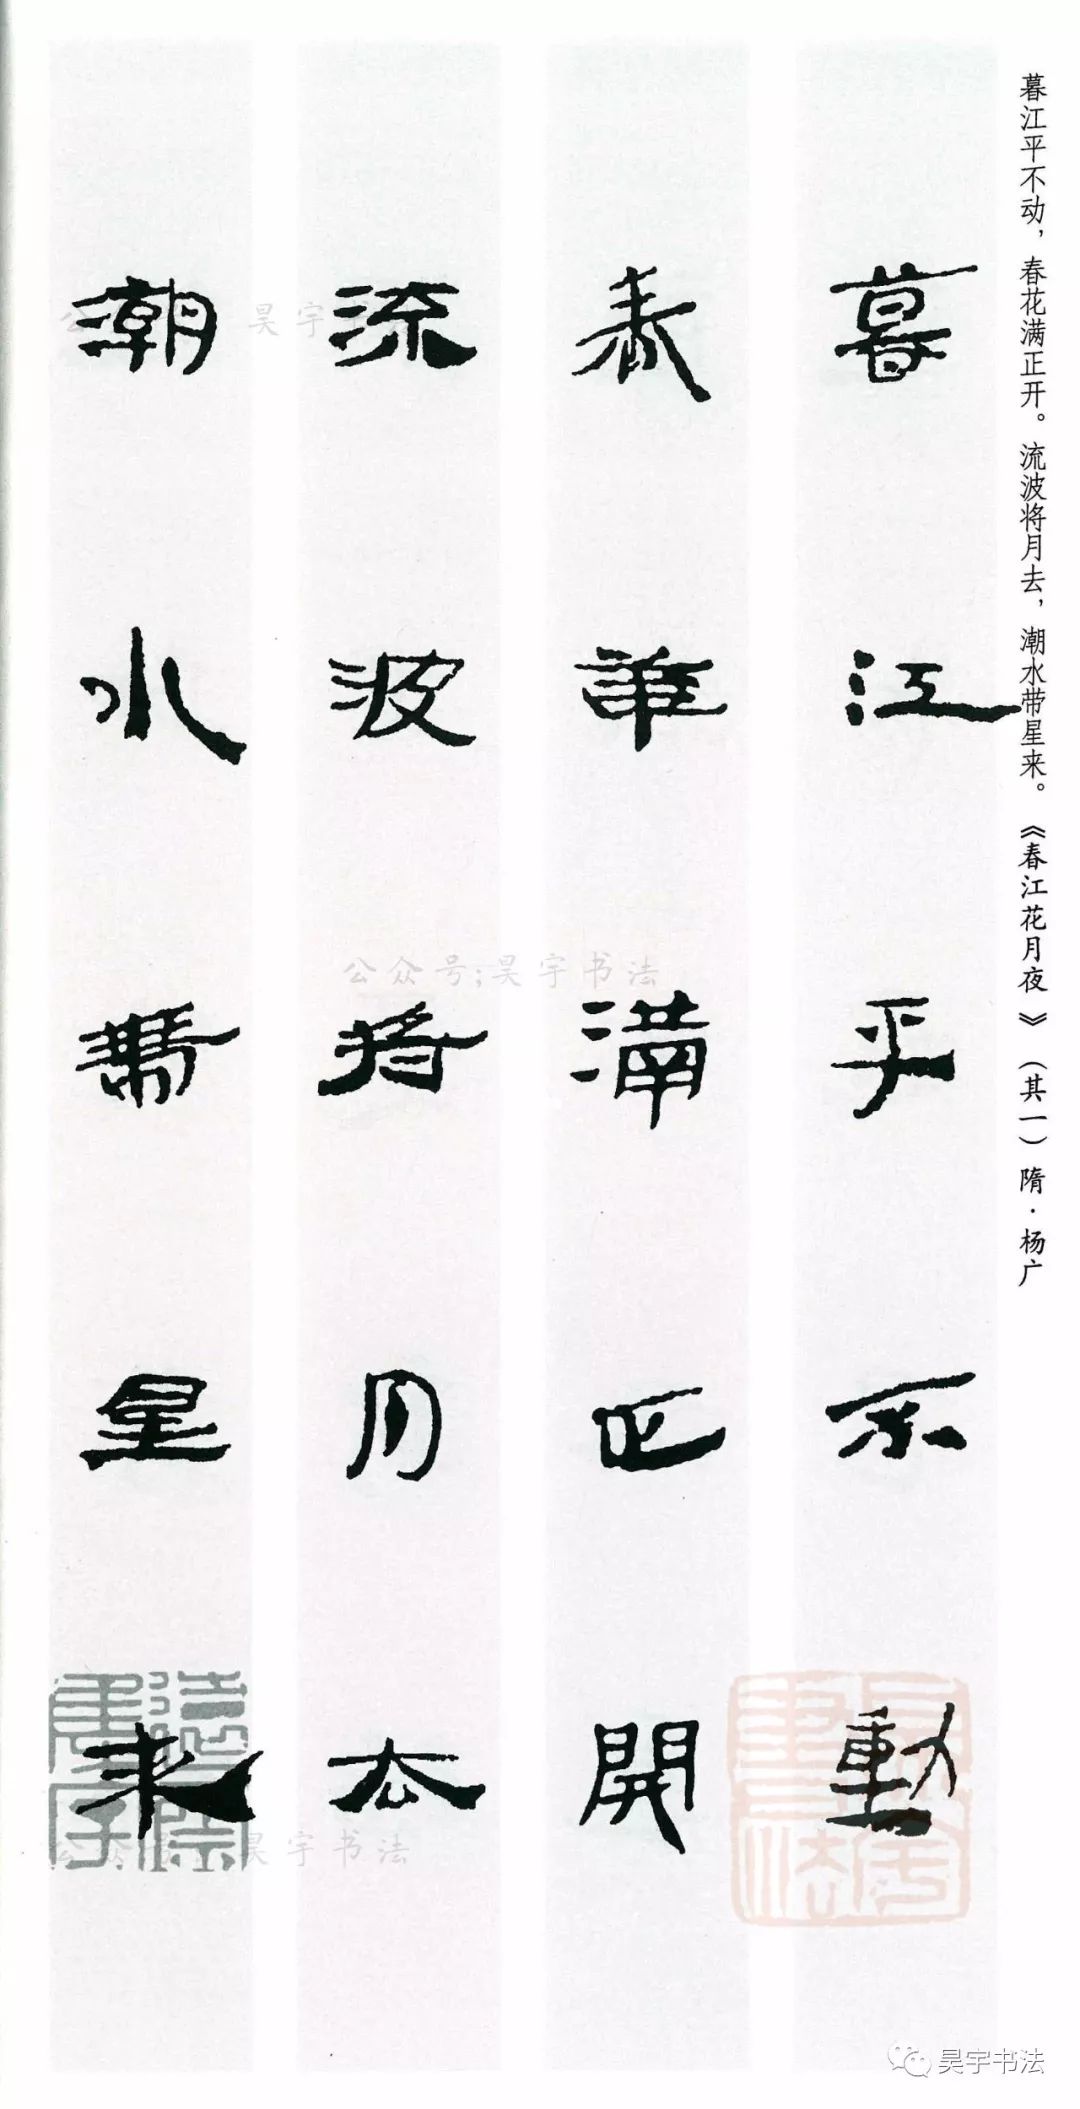 暮江平不动，春花满正开。流波将月去，潮水带星来。《春江花月夜》（其一）隋·杨广
暮江平不動
春華滿正開
流波将月去
潮水帶星来
公众号:昊宇书法
昊宇书法